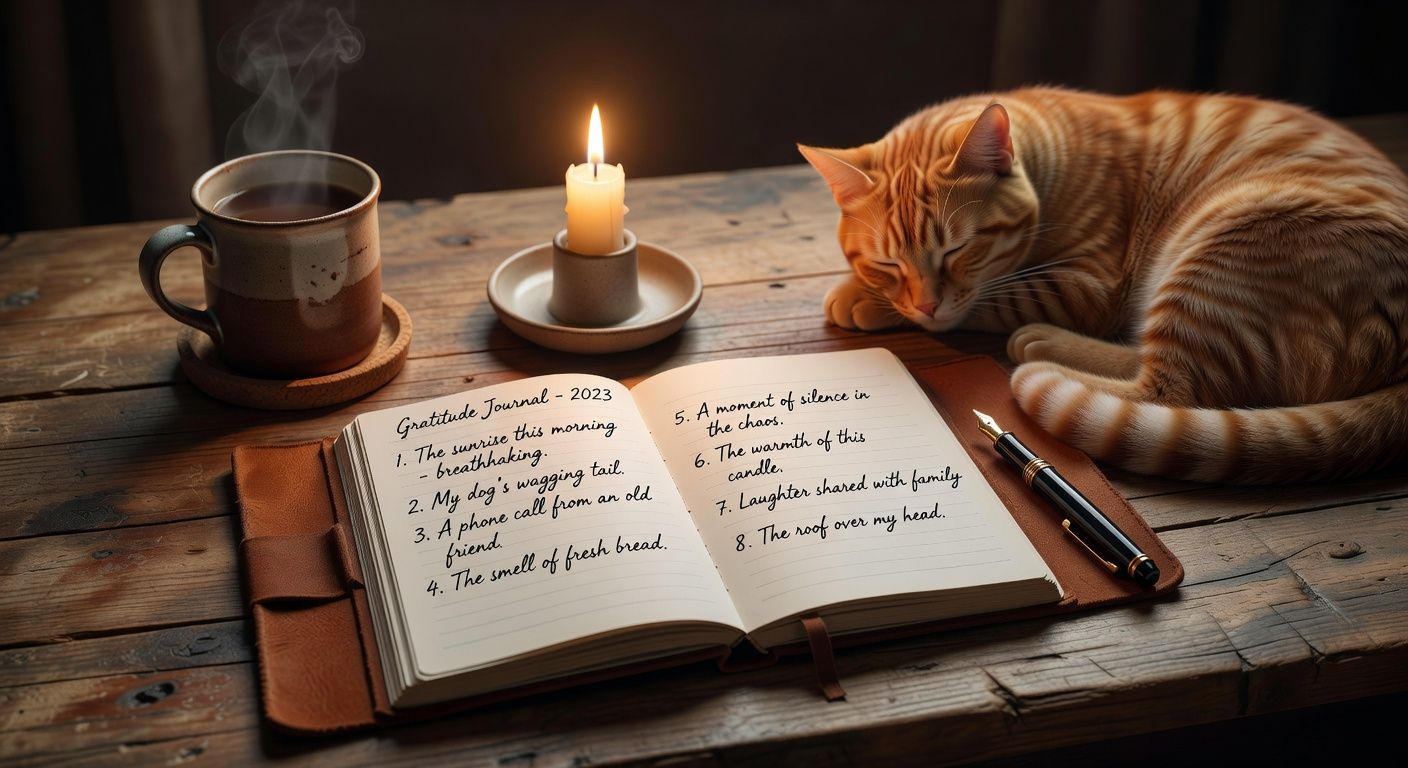 Gratitude Journal - 2023
1. The sunrise this morning
- breathhaking.
2. My dog's wagging tail.
3. A phone call from an old
friend.
4. The smell of fresh bread.
5. A moment of silence in
the chaos.
6. The warmth of this
candle.
7. Laughter shared with family
8. The roof over my head.